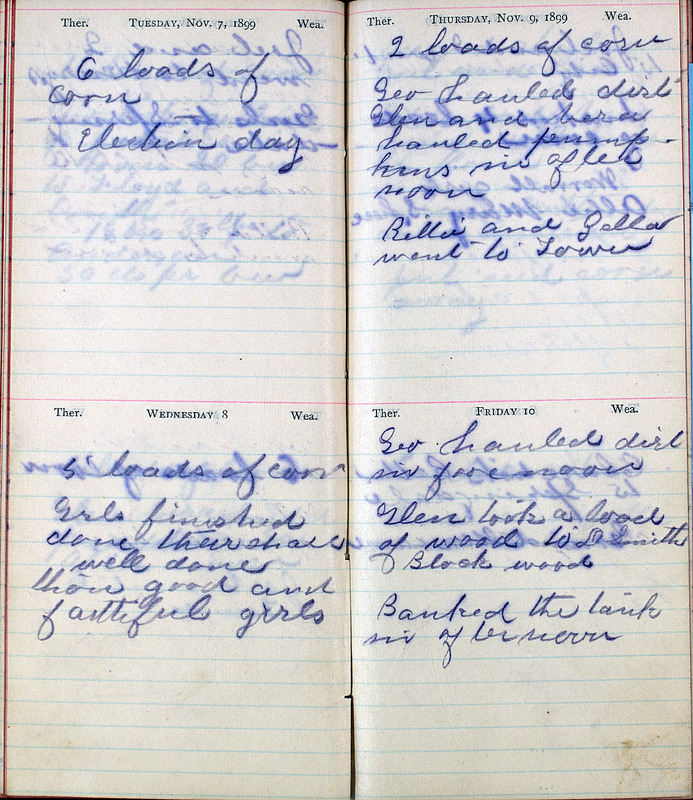 Ther. Tuesday, Nov. 7, 1899 Wea.
6 loads of
corn
Election day
Ther. Wednesday 8 Wea.
5 loads of corn
Girls finished
done their share
well done
thou good and
faithful girls
Ther. Thursday, Nov. 9, 1899 Wea.
2 loads of corn
Geo hauled dirt
Glen and
hauled pump-
kins in after
noon
and Zella
went to Tower
Ther. Friday 10 Wea.
Geo hauled dirt
in fore noon
Glen took a load
of wood to Smith
Block wood
Banked the tank
in afternoon